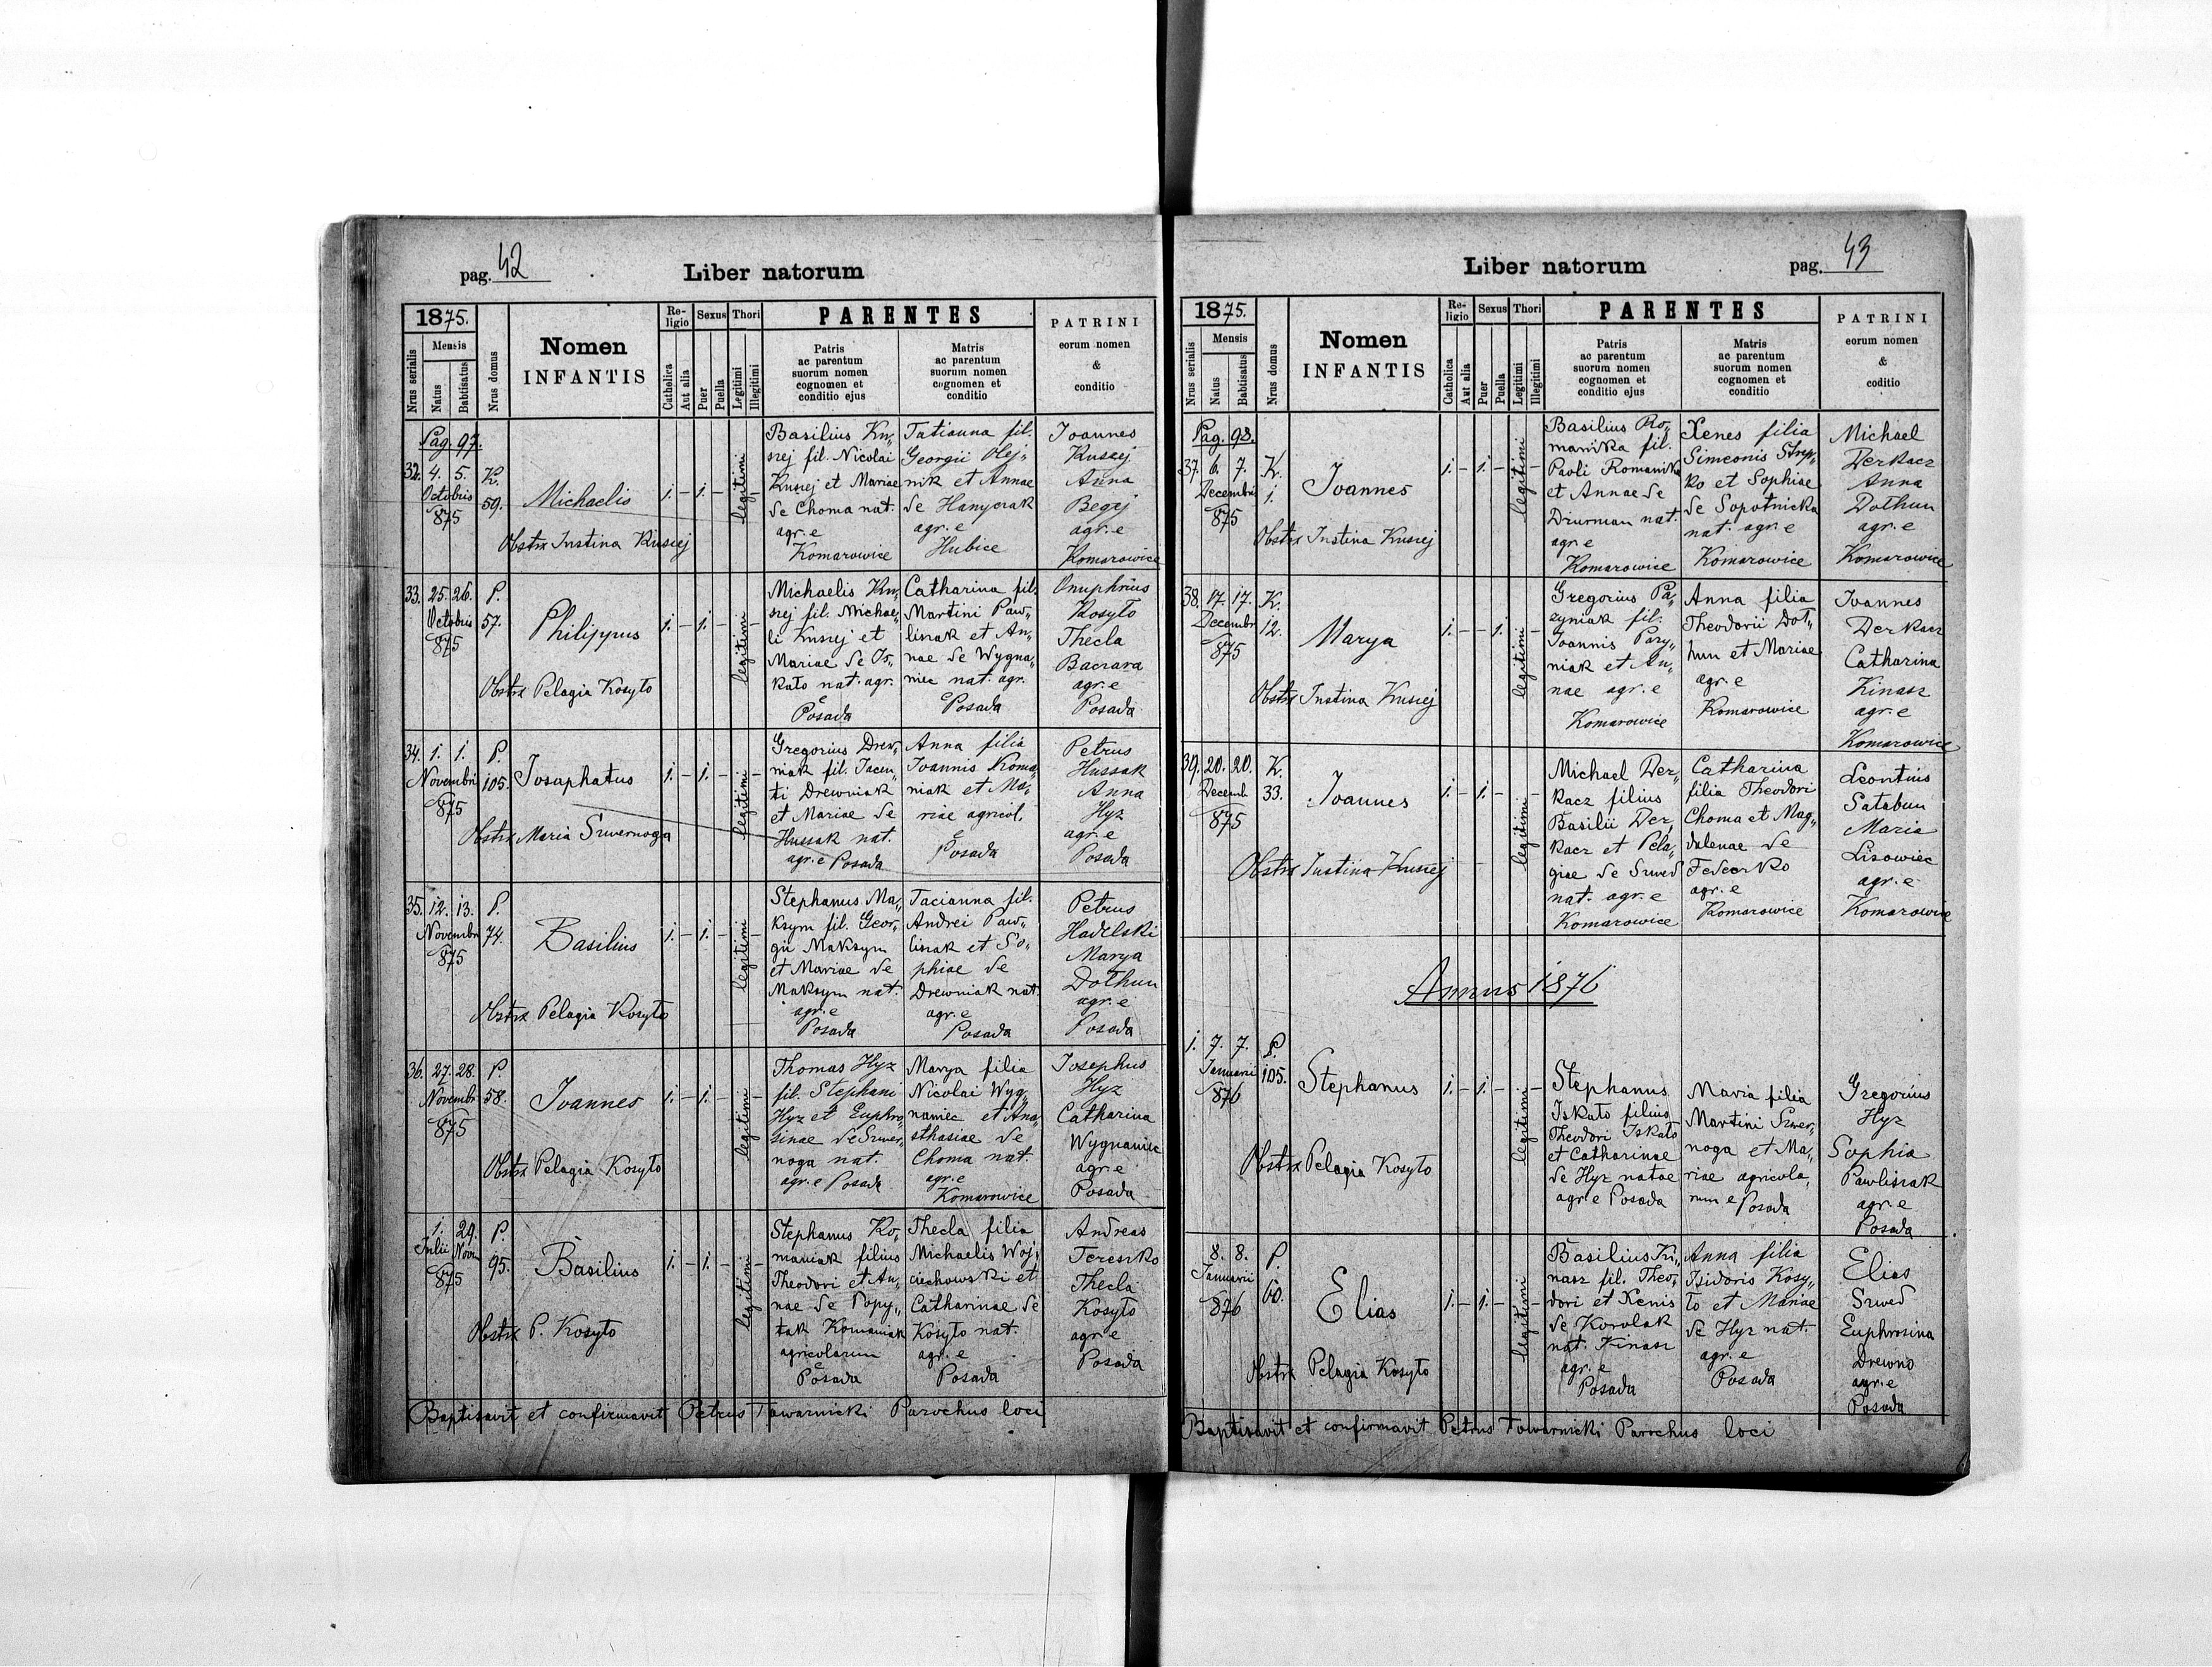 pag. 42
Liber natorum
1875.
Mensis
Nrus serialis
Natus
Babtisatus
Nrus domus
Nomen
INFANTIS
Re-
ligio
Catholica
Aut alia
Sexus
Puer
Puella
Thori
Legitimi
Illegitimi
PARENTES
Patris
ac parentum
suorum nomen
cognomen et
conditio ejus
Matris
ac parentum
suorum nomen
cognomen et
conditio
PATRINI
eorum nomen
&
conditio
Pag. 97.
32. 4. 5.
Octobris
875
K.
59.
Michaelis
1. – 1. –
legitimi
Obstx Iustina Kusiej
Basilius Ku„
siej fil. Nicolai
Kusiej et Mariae
de Choma nat.
agr. e
Komarowice
Tatianna fil.
Georgii Olej„
nik et Annae
de Hanyczak
agr. e
Hubice
Ioannes
Kusiej
Anna
Begej
agr. e
Komarowice
33. 25. 26.
Octobris
875
P.
57.
Philippus
1. – 1. –
legitimi
Obstx Pelagia Kosyto
Michaelis Ku„
siej fil. Michae„
li Kusiej et
Mariae de Is„
kato nat. agr.
e
Posada
Catharina fil.
Martini Paw„
lisiak et An„
nae de Wygna„
niec nat. agr.
e Posada
Onuphrius
Kosyto
Thecla
Baczara
agr. e
Posada
34. 1. 1.
Novembri
875
P.
105.
Iosaphatus
1. – 1. –
legitimi
Obstx Maria Szwernoga
Gregorius Drew„
niak fil. Iacen„
ti Drewniak
et Mariae de
Hussak nat.
agr. e Posada
Anna filia
Ioannis Roma„
niak et Ma„
riae agricol.
e
Posada
Petrus
Hussak
Anna
Hyz
agr. e
Posada
35. 12. 13.
Novembr
875
P.
74.
Basilius
1. – 1. –
legitimi
Obstx Pelagia Kosyto
Stephanus Ma„
ksym fil. Geor„
gii Maksym
et Mariae de
Maksym nat.
agr. e
Posada
Tacianna fil.
Andrei Paw„
lisiak et So„
phiae de
Drewniak nat.
agr. e
Posada
Petrus
Hadelski
Marya
Dothun
agr. e
Posada
36. 27. 28.
Novembr
875
P
58.
Ioannes
1. – 1. –
legitimi
Obstx Pelagia Kosyto
Thomas Hyz
fil. Stephani
Hyz et Euphro„
sinae de Szwer„
noga nat.
agr. e Posada
Marya filia
Nicolai Wyg„
naniec et Ana„
sthasiae de
Choma nat.
agr. e
Komarowice
Iosephus
Hyz
Catharina
Wygnaniec
agr e
Posada
1. 29.
Iulii Nove
875
P.
95.
Basilius
1. – 1. –
legitimi
Obstx P. Kosyto
Stephanus Ro„
maniak filius
Theodori et An„
nae de Popy„
tak Romaniak
agricolarum
e
Posada
Thecla filia
Michaelis Woj„
ciechowski et
Catharinae de
Kosyto nat.
agr. e
Posada
Andreas
Ferenko
Thecla
Kosyto
agr e
Posada
Baptisavit et confirmavit Petrus Towarnicki Parochus loci
Liber natorum
pag. 43
1875.
Mensis
Nrus serialis
Natus
Babtisatus
Nrus domus
Nomen
INFANTIS
Re-
ligio
Catholica
Aut alia
Sexus
Puer
Puella
Thori
Legitimi
Illegitimi
PARENTES
Patris
ac parentum
suorum nomen
cognomen et
conditio ejus
Matris
ac parentum
suorum nomen
cognomen et
conditio
PATRINI
eorum nomen
&
coditio
Pag. 98.
37. 6. 7.
Decembri
875
K.
1.
Ioannes
1. – 1. –
legitimi
Obstx Iustina Kusiej
Basilius Ro„
manika fil.
Pauli Romanika
et Annae de
Diurman nat.
agr. e
Komarowice
Xenes filia
Simeonis Step„
ko et Sophiae
de Sopotnicka
nat. agr. e
Komarowice
Michael
Derkacz
Anna
Dothun
agr. e
Komarowice
38. 17. 17.
Decembr
875
K.
12.
Marya
1. – – 1.
legitimi
Obstx Iustina Kusiej
Gregorius Pa„
zyniak fil.
Ioannis Pazy„
niak et An„
nae agr. e
Komarowice
Anna filia
Theodorii Dot„
hun et Mariae
agr. e
Komarowice
Ioannes
Derkacz
Catharina
Kinasz
agr. e
Komarowice
39. 20. 20.
Decemb
875
K.
33.
Ioannes
1. – 1. –
legitimi
Obstx Iustina Kusiej
Michael Der„
kacz filius
Basilii Der„
kacz et Pela„
giae de Szwed
nat. agr. e
Komarowice
Catharina
filia Theodori
Choma et Mag„
dalenae de
Fedorko
agr. e
Komarowice
Leontius
Satabun
Maria
Lisowiec
agr. e
Komarowice
Annus 1876
1. 7. 7.
Ianuarii
876
P.
105.
Stephanus
1. – 1. –
legitimi
Obstx Pelagia Kosyto
Stephanus
Iskato filius
Theodori Iskato
et Catharinae
de Hyz natae
agr e Posada
Maria filia
Martini Szwer„
noga et Ma„
riae agricola„
rum e Posada
Gregorius
Hyz
Sophia
Pawlisiak
agr. e
Posada
8. 8.
Ianuarii
876
P.
60.
Elias
1. – 1. –
legitimi
Obstx Pelagia Kosyto
Basilius Ki„
nasz fil. Theo„
dori et Xenis
de Korolak
nat. Kinasz
agr. e
Posada
Anna filia
Isidoris Kosy„
to et Mariae
de Hyz nat.
agr. e
Posada
Elias
Szwed
Euphrosina
Drewno
agr. e
Posada
Baptisavit et confirmavit Petrus Towarnicki Parochus loci